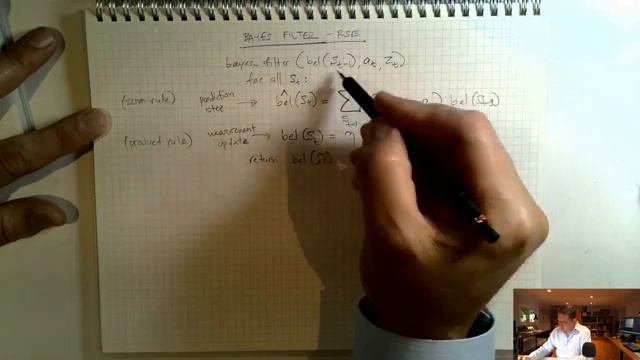 BAYES FILTER - RSE
bayes filter (bel(S_{t-1}), a_t, z_t)
for all S_t:
(sum rule) prediction step → bel̂(S_t) = Σ_{S_{t-1}} bel(S_{t-1})
(product rule) measurement update → bel(S_t) = η
return bel(S_t)